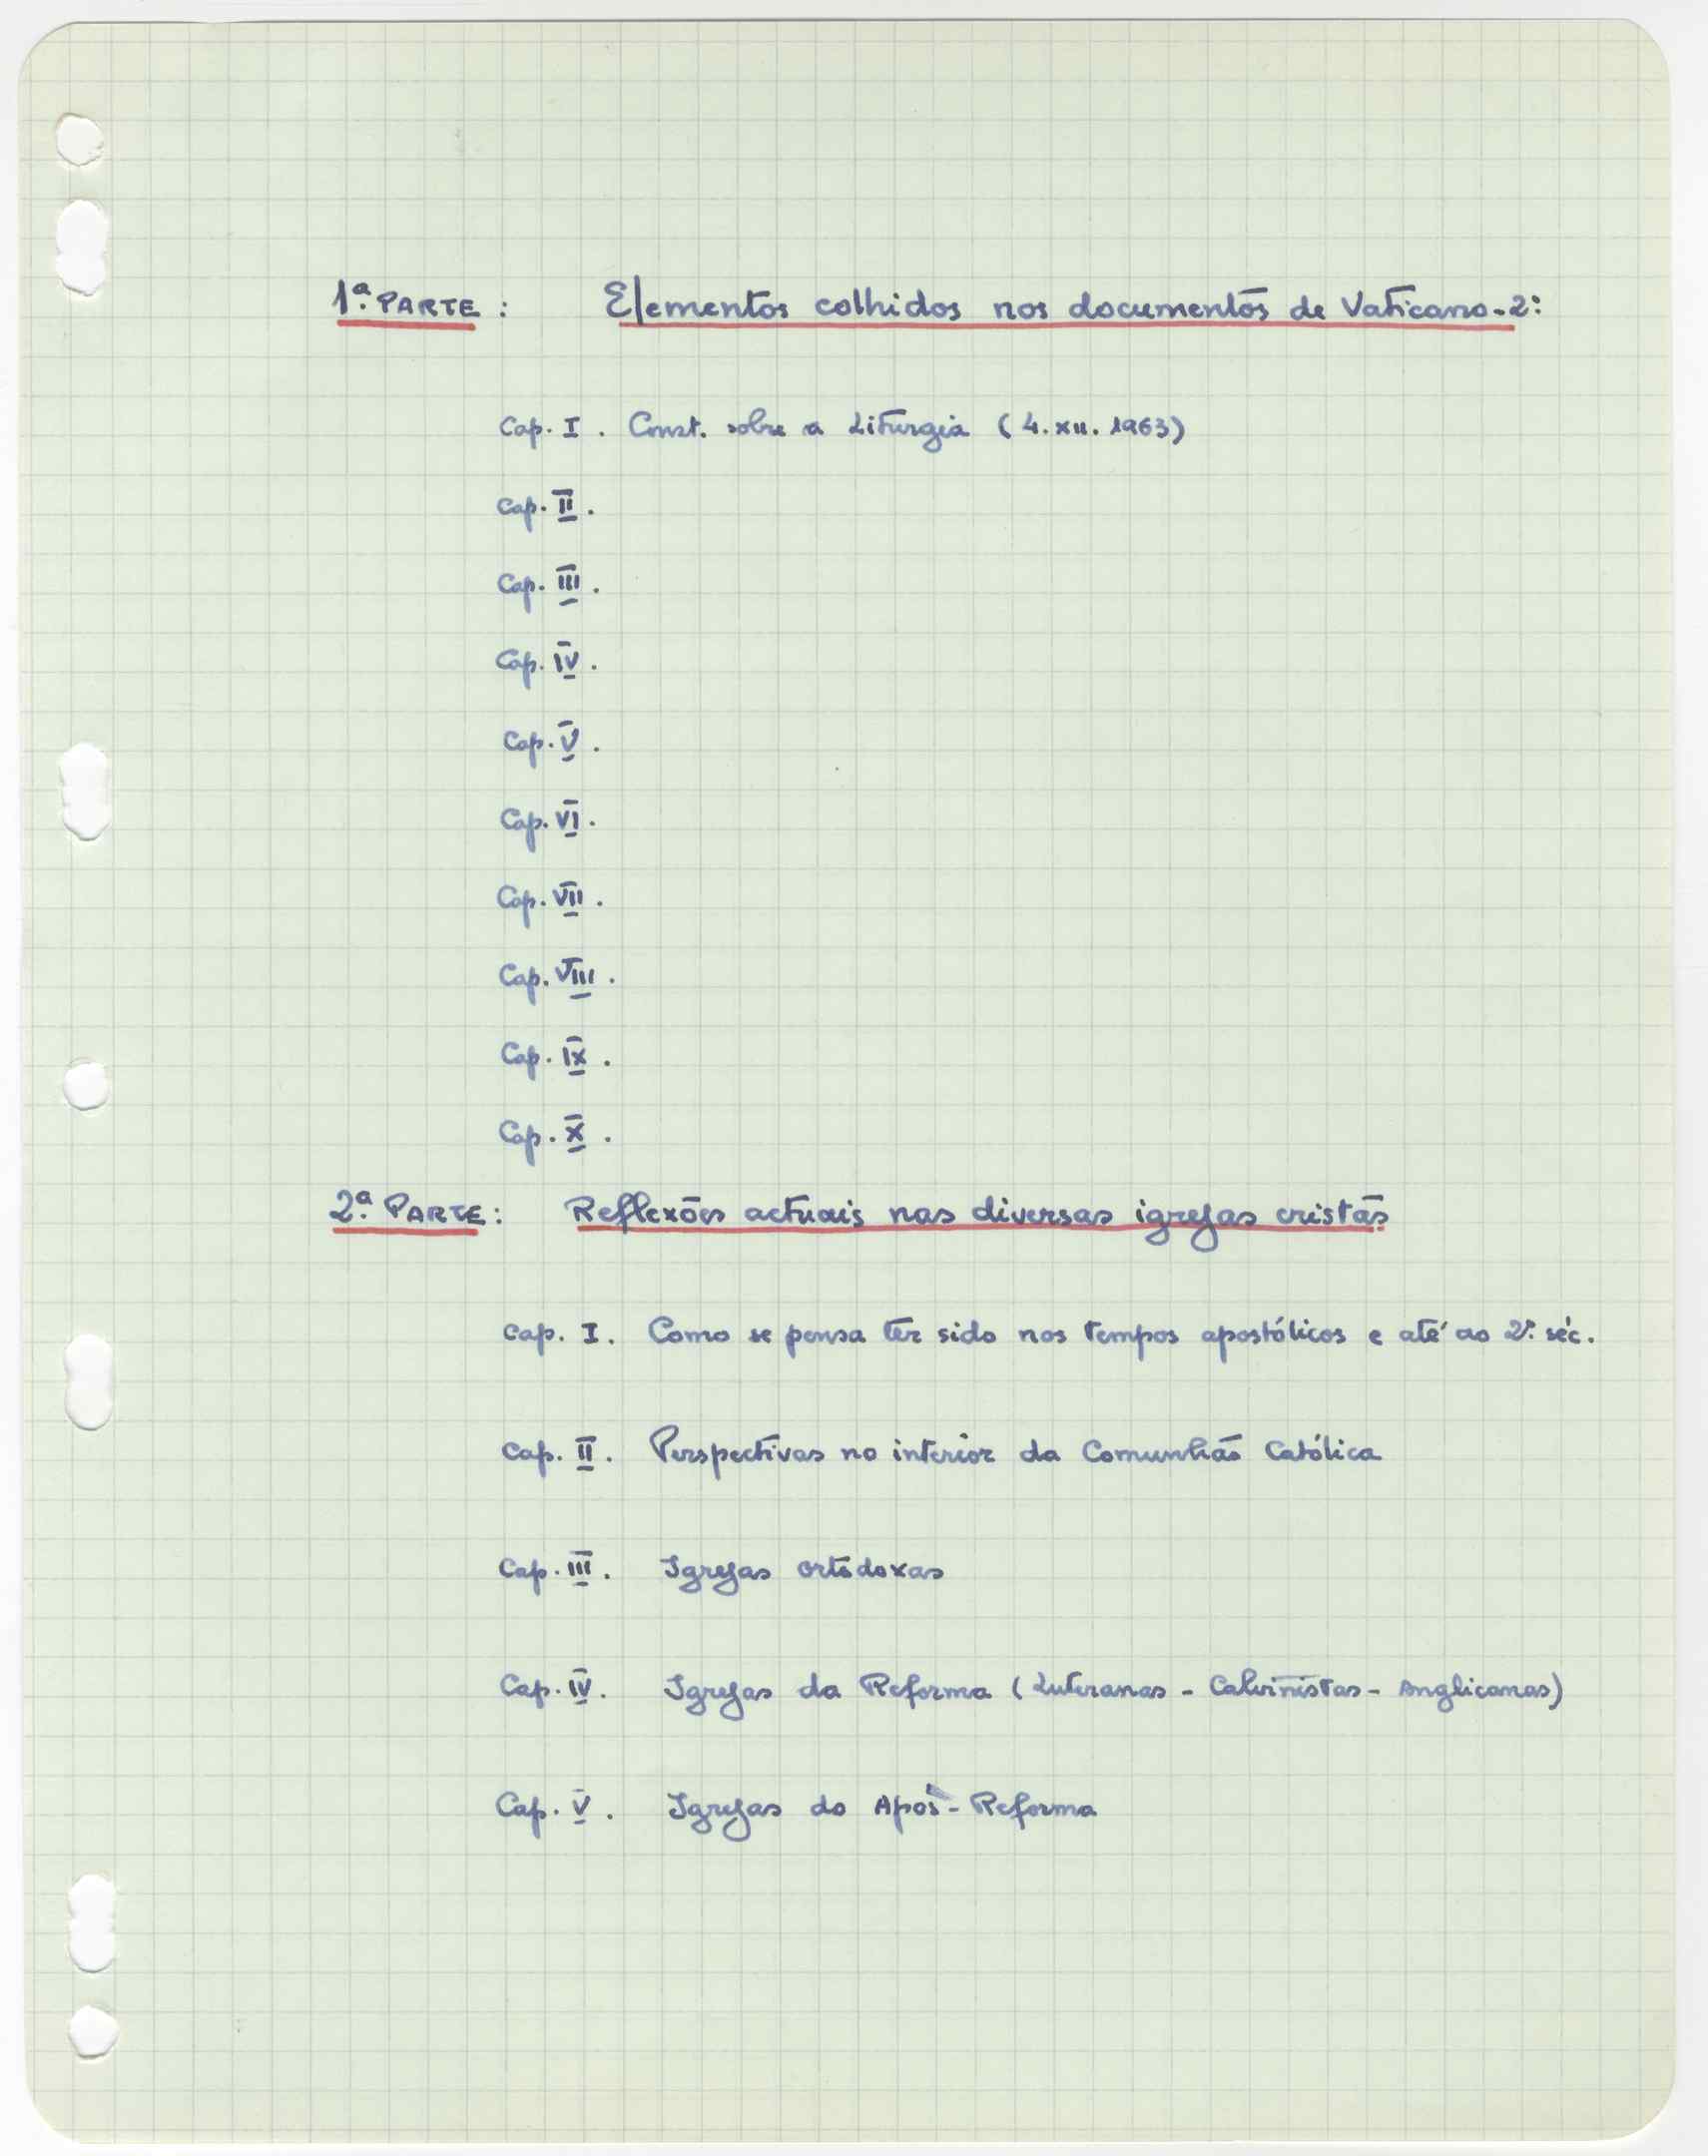 1ª PARTE : Elementos colhidos nos documentos de Vaticano-2:
Cap. I . Const. sobre a Liturgia (4. XII. 1963)
Cap. II .
Cap. III .
Cap. IV .
Cap. V .
Cap. VI .
Cap. VII .
Cap. VIII .
Cap. IX .
Cap. X .
2ª PARTE : Reflexões actuais nas diversas igrejas cristãs
Cap. I . Como se pensa ter sido nos tempos apostólicos e até ao 2º séc.
Cap. II . Perspectivas no interior da Comunhão Católica
Cap. III . Igrejas ortodoxas
Cap. IV . Igrejas da Reforma (Luteranas - Calvinistas - Anglicanas)
Cap. V . Igrejas do Após-Reforma